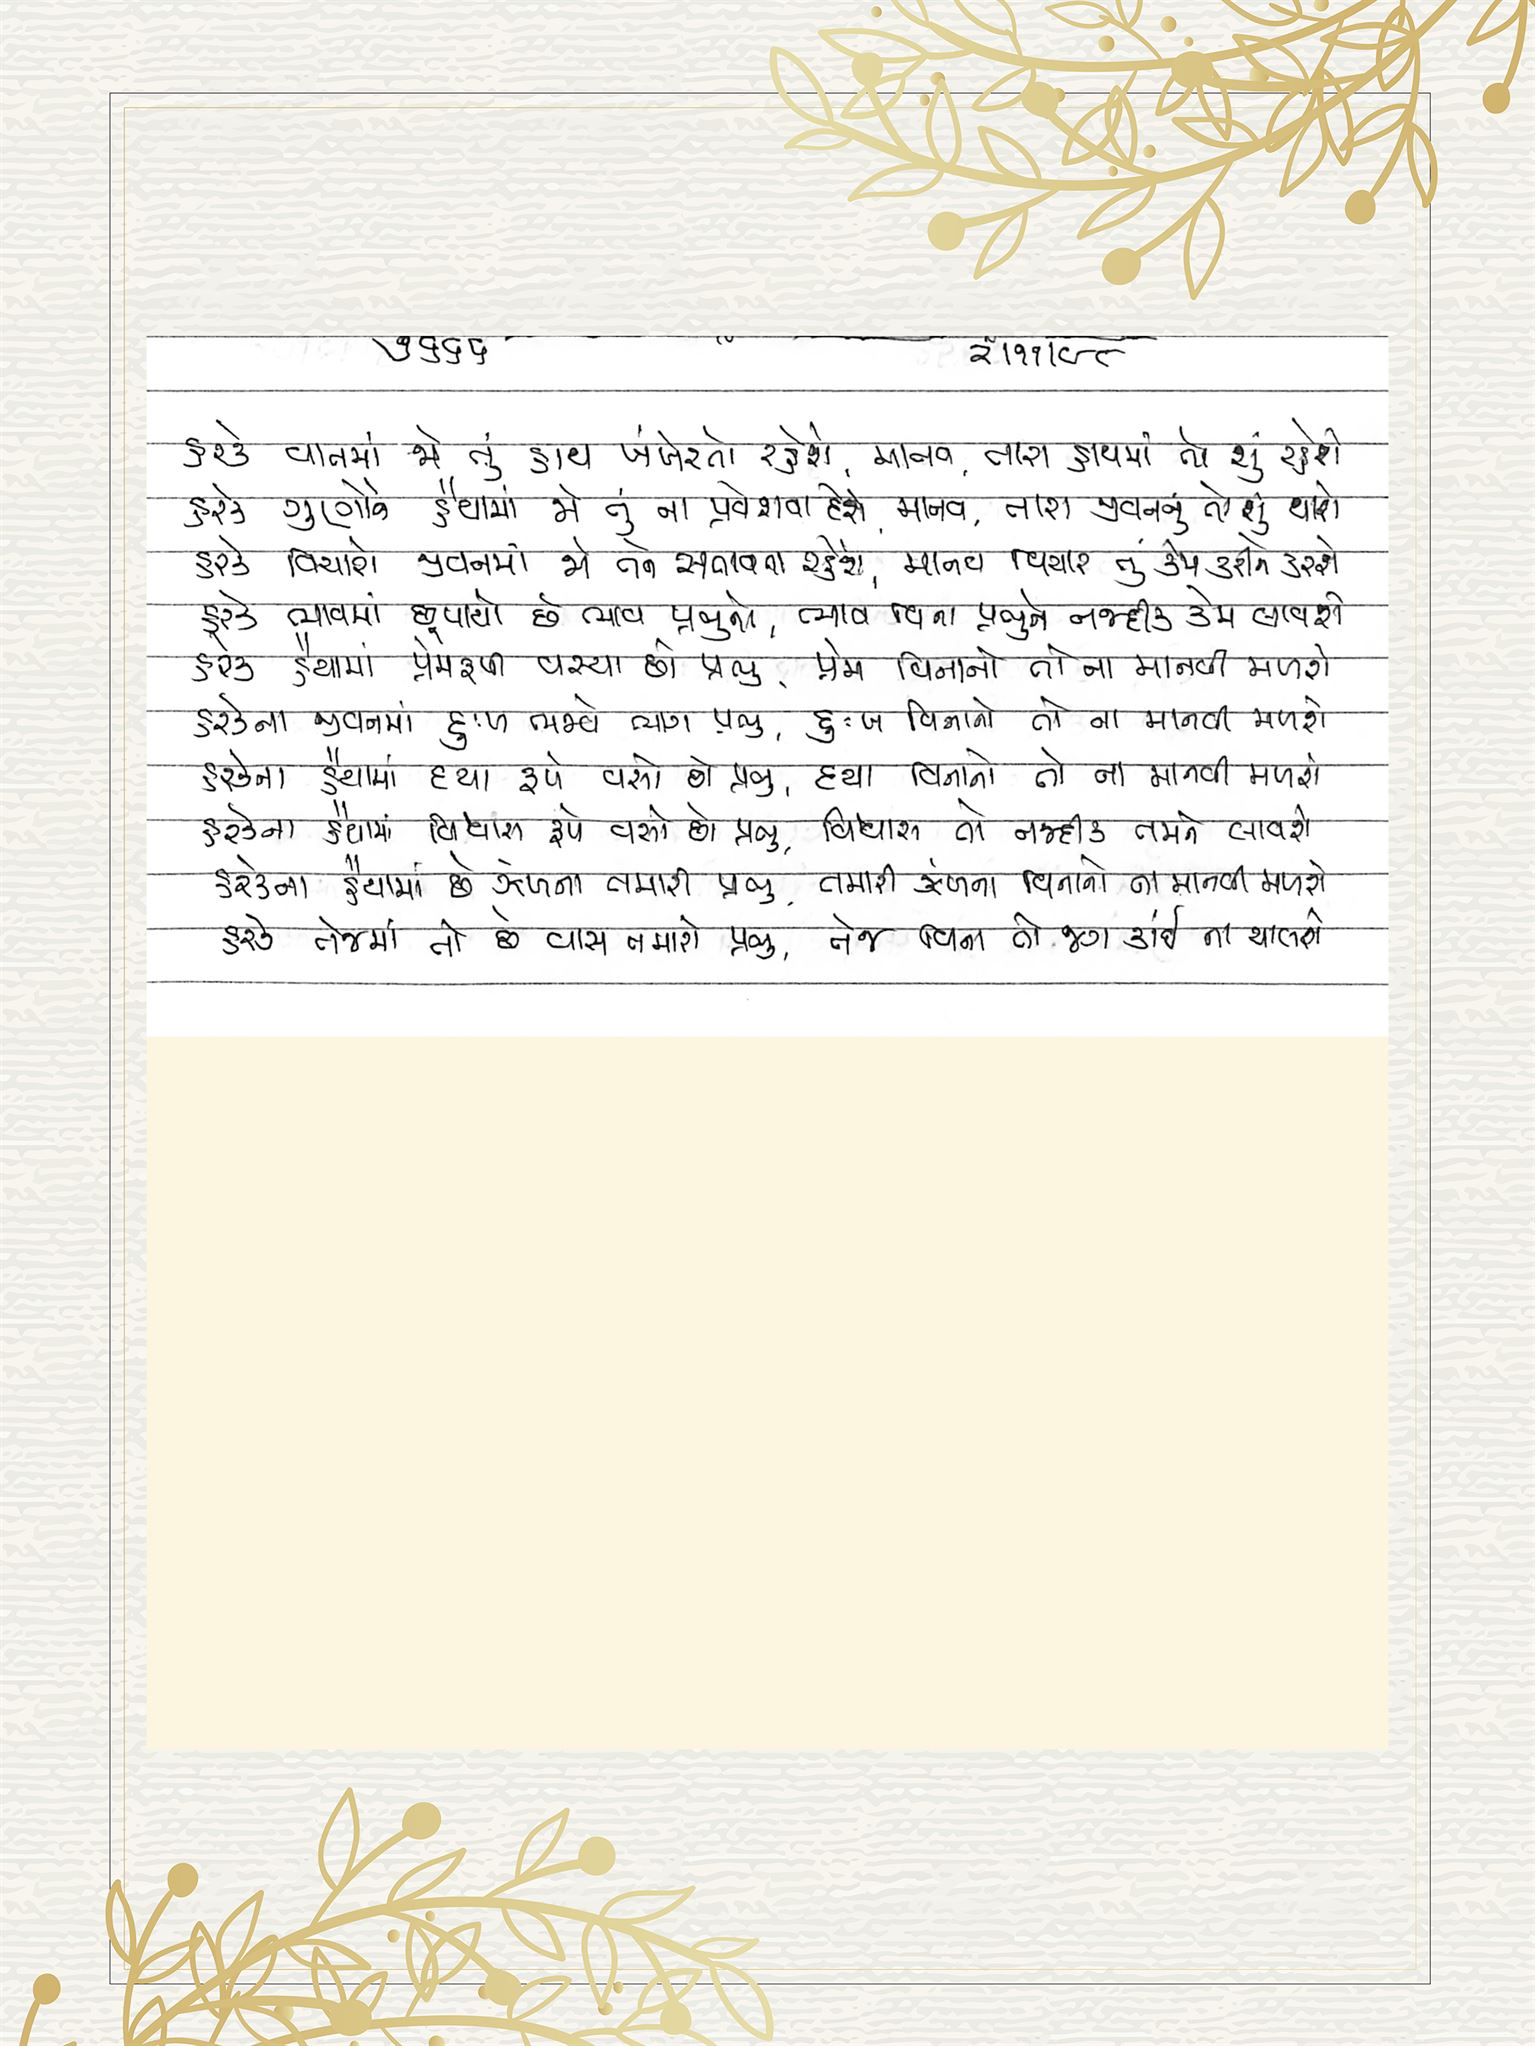 ૭૬૬૬ ૨/૧૧/૯૮
હરએક વાતમાં જો તું હાથ ખંખેરતો રહેશે, માનવ, તારા હાથમાં તો શું રહેશે
હરએક ગુણોને હૈયામાં જો તું ના પ્રવેશવા દેશે, માનવ, તારા જીવનનું તો શું થાશે
હરએક વિચારો જીવનમાં જો તને સતાવતા રહેશે, માનવ વિચાર તું કેમ કરીને કરશે
હરએક ભાવમાં છૂપાયો છે ભાવ પ્રભુનો, ભાવ વિના પ્રભુને નજદીક કેમ લાવશે
હરએક હૈયામાં પ્રેમરૂપી વસ્યા છો પ્રભુ, પ્રેમ વિનાનો તો ના માનવી મળશે
હરએકના જીવનમાં દુઃખ ભાગ પ્રભુ, દુઃખ વિનાનો તો ના માનવી મળશે
હરએકના હૈયામાં દયા રૂપે વસો છો પ્રભુ, દયા વિનાનો તો ના માનવી મળશે
હરએકના હૈયામાં વિશ્વાસ રૂપે વસો છો પ્રભુ, વિશ્વાસ તો નજદીક તમને લાવશે
હરએકના હૈયામાં છે ઝંખના તમારી પ્રભુ, તમારી ઝંખના વિનાનો ના માનવી મળશે
હરએક તેજમાં તો છે વાસ તમારો પ્રભુ, તેજ વિના તો જગ કાંઈ ના ચાલશે